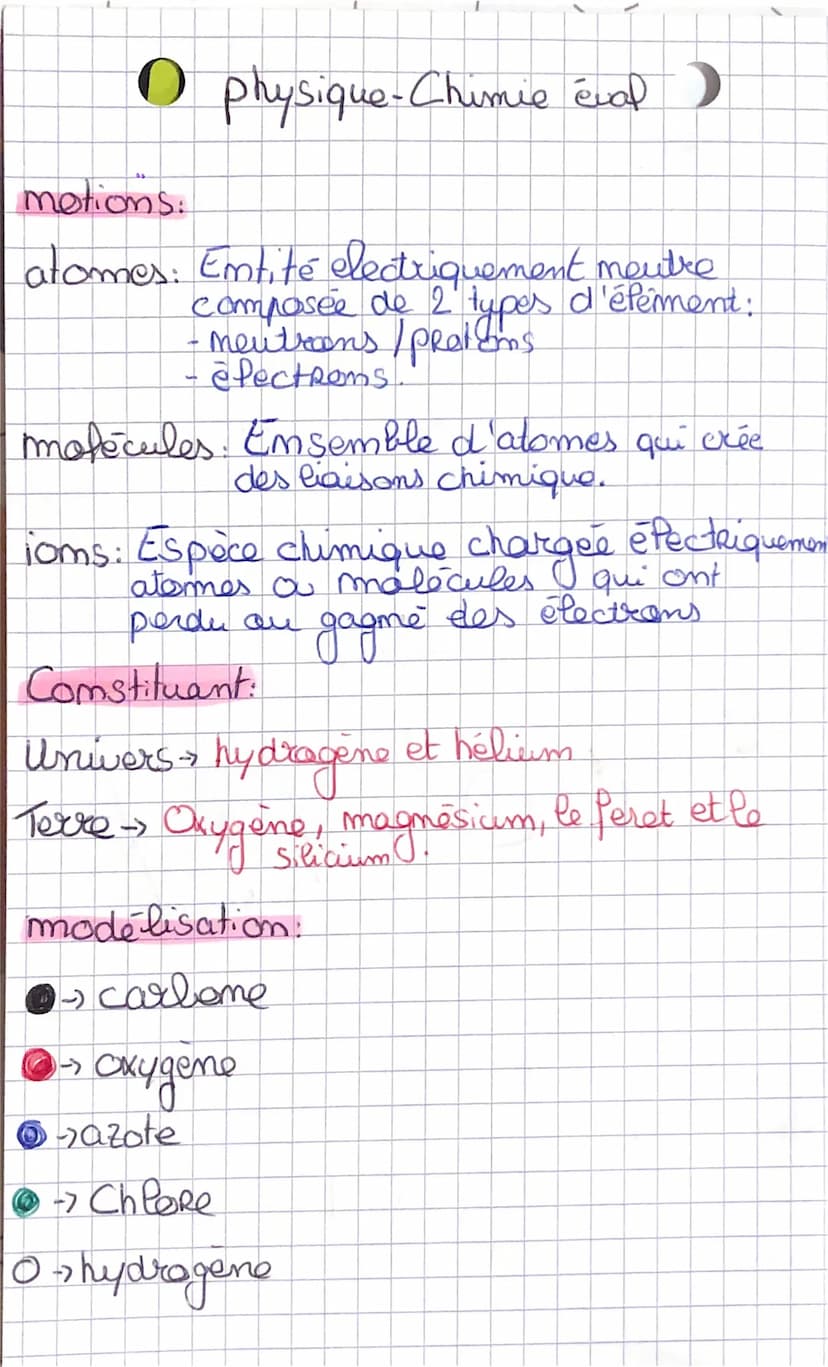 Physique-Chimie éval
notions:
atomes: Entité electriquement neutre
composée de 2 types d'élément:
- neutrons / protons
- électrons.
molécules: Ensemble d'atomes qui crée
des liaisons chimique.
ions: Espèce chimique chargée électriquemen
atomes ou molécules qui ont
perdu ou gagné des électrons
Constituant:
Univers → hydrogène et hélium
Terre → Oxygène, magnésium, le feret et le
silicium.
modélisation:
→ carbone
→ oxygène
→ azote
→ Chlore
→ hydrogène